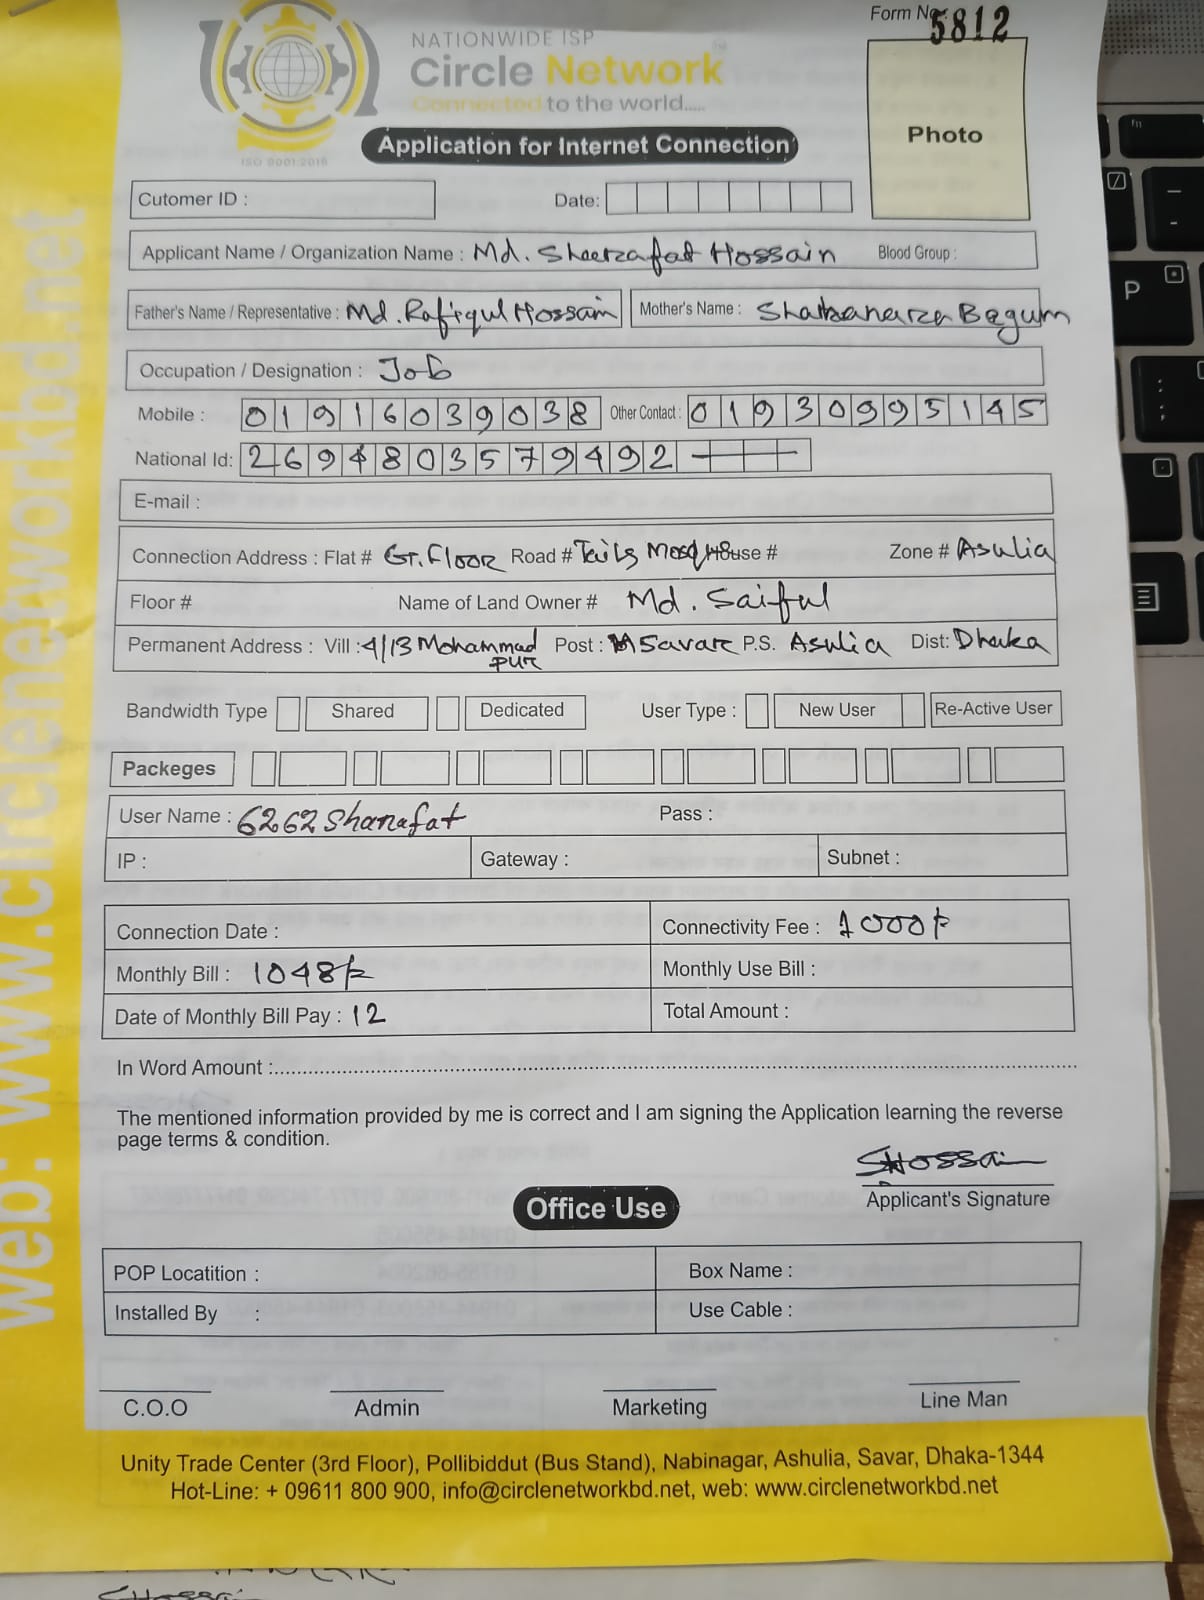 Form No: 5812
NATIONWIDE ISP
Circle Network
Connected to the world.....
ISO 9001:2015
Application for Internet Connection
Photo
Cutomer ID :
Date:
Applicant Name / Organization Name : Md. Sharafat Hossain Blood Group :
Father's Name / Representative : Md. Rafiqul Hossain Mother's Name : Begum
Occupation / Designation : Job
Mobile : 01916039038 Other Contact : 01930995145
National Id: 2694803579492
E-mail :
Connection Address : Flat # Gr. Floor Road # House # Zone # Asulia
Floor # Name of Land Owner # Md. Saiful
Permanent Address : Vill : 4/13 Mohammad pur Post : Savar P.S. Asulia Dist: Dhaka
Bandwidth Type Shared Dedicated User Type : New User Re-Active User
Packeges
User Name : 6262sharafat Pass :
IP : Gateway : Subnet :
Connection Date : Connectivity Fee : 1000/-
Monthly Bill : 1048/- Monthly Use Bill :
Date of Monthly Bill Pay : 12 Total Amount :
In Word Amount :
The mentioned information provided by me is correct and I am signing the Application learning the reverse
page terms & condition.
SHossain
Applicant's Signature
Office Use
POP Locatition : Box Name :
Installed By : Use Cable :
C.O.O Admin Marketing Line Man
Unity Trade Center (3rd Floor), Pollibiddut (Bus Stand), Nabinagar, Ashulia, Savar, Dhaka-1344
Hot-Line: + 09611 800 900, info@circlenetworkbd.net, web: www.circlenetworkbd.net
web: www.circlenetworkbd.net